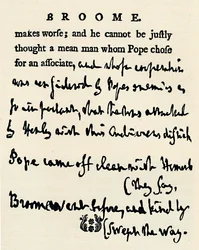 BROOME.
makes worse; and he cannot be justly
thought a mean man whom Pope chose
for an associate, and whose cooperation
was considered by Popes enemies as
so important, that he was attacked
by Henly with this Ludicrous distich
Pope came off clean with Homer
(They Say,
Broome went before, and kindly
(Swept the way.